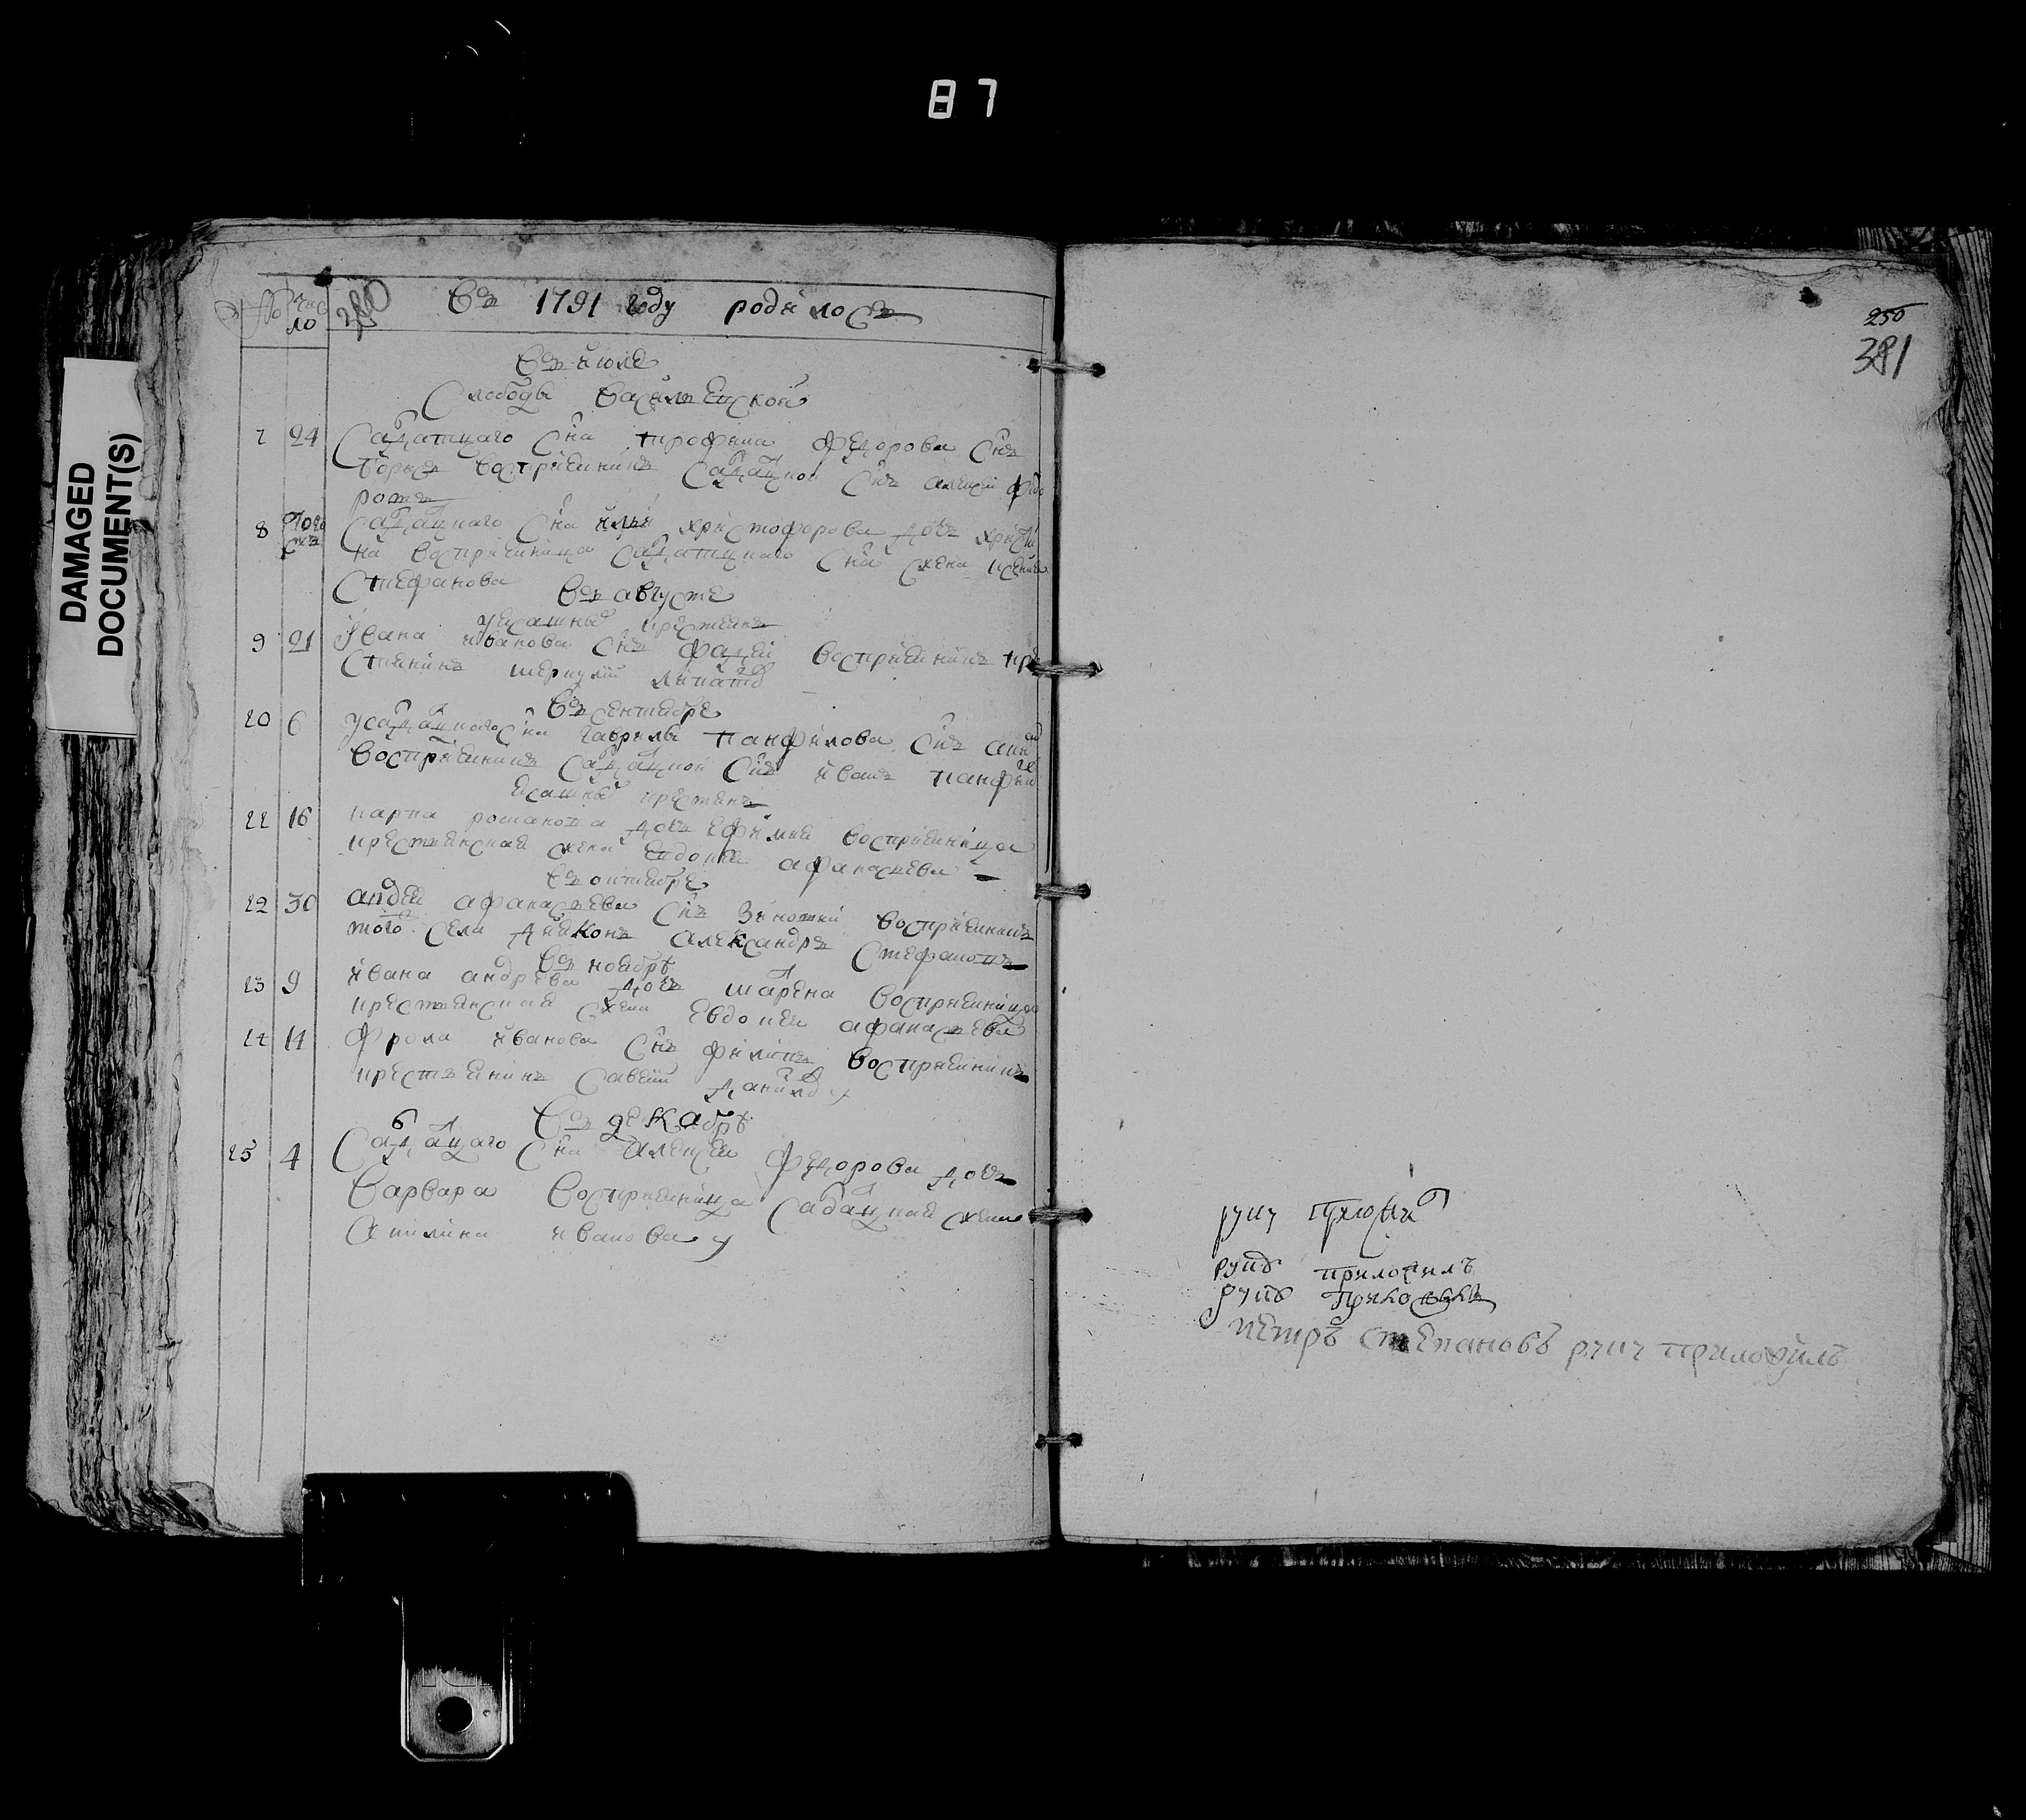 87
DAMAGED
DOCUMENT(S)
№ число
380
Въ 1791 году родилосъ
Въ июле
Слободы
7 24 Салдатцкаго сна Трофима Федорова снъ
восприемникъ салдацкой снъ алексей фьдо
ровъ
8 того Салдацкаго сна ильи христофорова дочь христи
на восприемница салдатцкаго сна жена ксения
Стефанова
Въ августе
ясашные крестяне
9 21 Ивана иванова снъ фадей восприемникъ кре
стянинъ меркулий
Въ сентябре
10 6 У салдацкаго сна гаврилы панфилова снъ
восприемникъ салдацкой снъ иванъ панфи
ясашные крестяне
11 16 карпа романова дочь ефимия восприемница
крестьянская жена евдокия афанасьева
Въ октябре
12 30 андрея афанасьева снъ зиновий восприемникъ
того села дияконъ александръ Стефановъ
Въ ноябрѣ
13 9 ивана андрѣева дочь марена восприемница
крестьянская жена евдокия афанасьева
14 14 Фрола иванова снъ филипъ восприемникъ
крестьянинъ савелий данило
Въ декабрѣ
15 4 Салдацкаго сна алексея Федорова дочь
варвара восприемница салдацкая жена
акилина иванова
250
381
руку приложилъ
руку приложилъ
руку приложилъ
петръ степановъ руку приложилъ